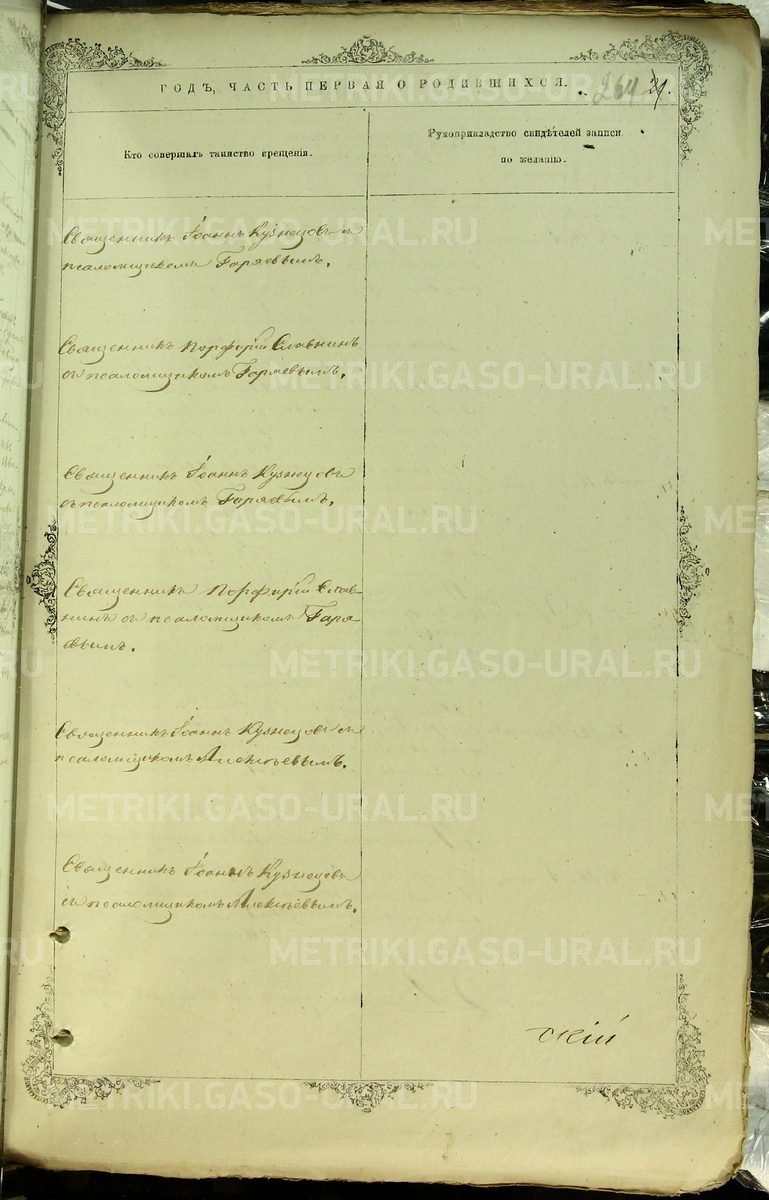 ГОДЪ, ЧАСТЬ ПЕРВАЯ О РОДИВШИХСЯ.
264 21.
Кто совершалъ таинство крещенія.
Рукоприкладство свидѣтелей записи
по желанію.
Священникъ Іоаннъ Кузнецовъ съ
псаломщикомъ Гаряевымъ.
Священникъ Порфирій Славнинъ
съ псаломщикомъ Гаряевымъ.
Священникъ Іоаннъ Кузнецовъ
съ псаломщикомъ Гаряевымъ.
Священникъ Порфирій Слав-
нинъ съ псаломщикомъ Гаря-
евымъ.
Священникъ Іоаннъ Кузнецовъ съ
псаломщикомъ Алексѣевымъ.
Священникъ Іоаннъ Кузнецовъ
съ псаломщикомъ Алексѣевымъ.
скій
METRIKI.GASO-URAL.RU